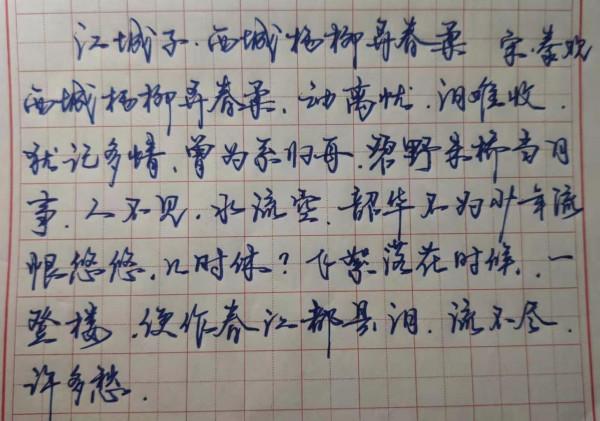 江城子·西城杨柳弄春柔 宋·秦观
西城杨柳弄春柔，动离忧，泪难收。
犹记多情，曾为系归舟，碧野朱桥当日
事，人不见，水流空，韶华不为少年流
恨悠悠，几时休？飞絮落花时候，一
登楼，便作春江都是泪，流不尽，
许多愁。